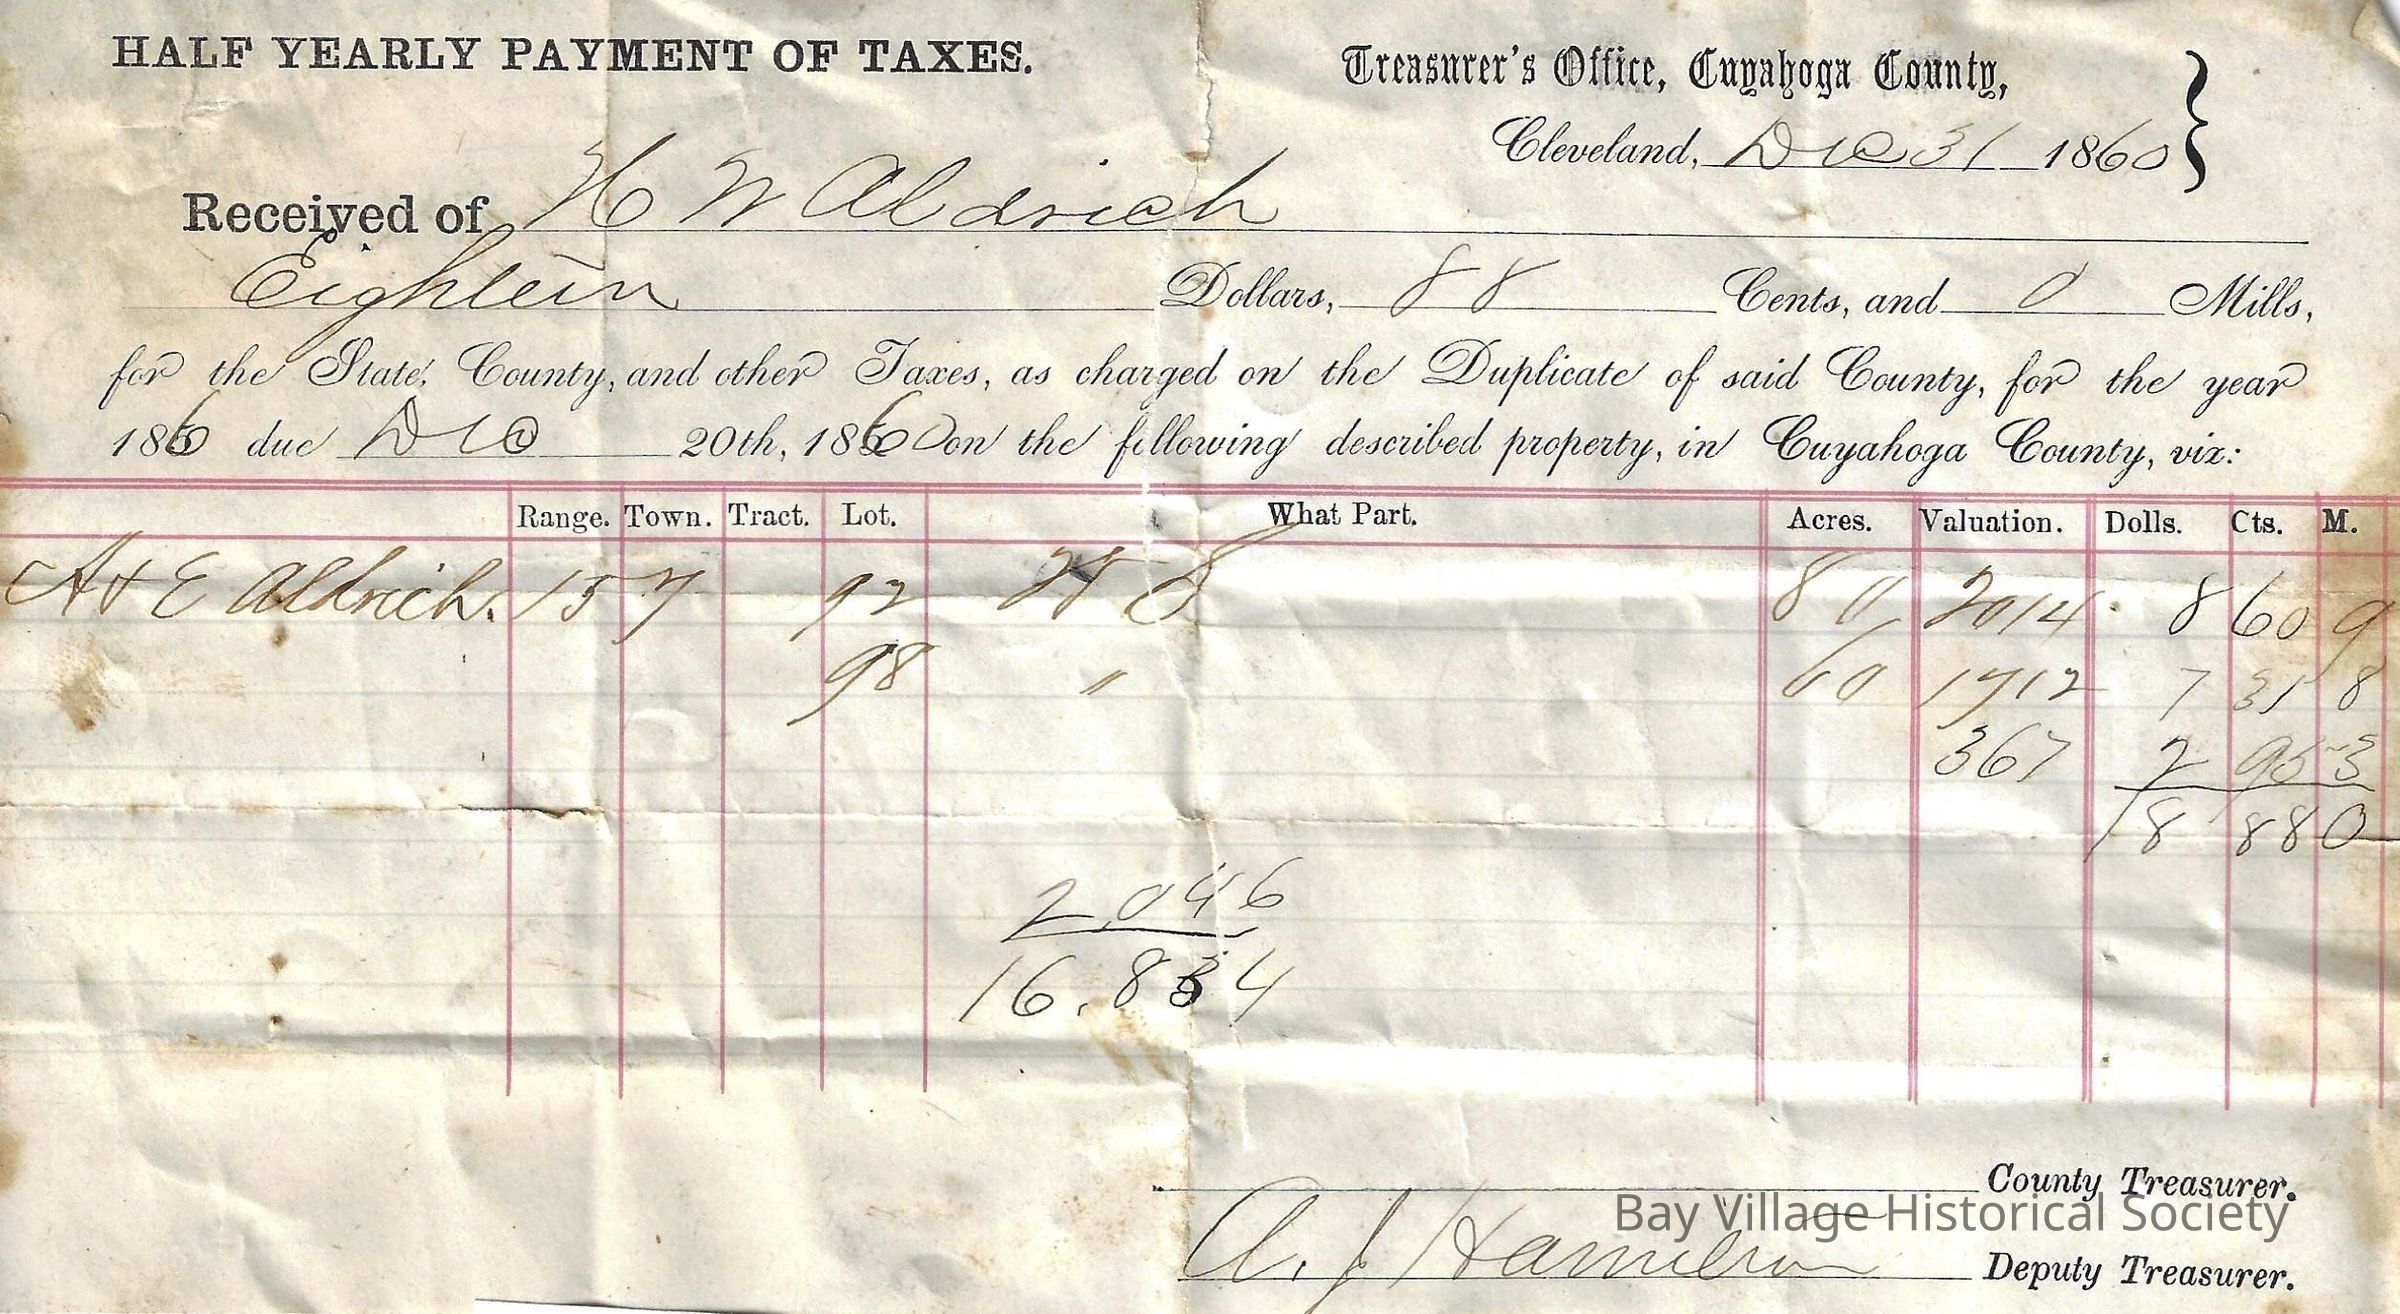 HALF YEARLY PAYMENT OF TAXES.
Treasurer's Office, Cuyahoga County,
Cleveland, Dec 31 1860
Received of H W Aldrich
Eighteen Dollars, 88 Cents, and 0 Mills,
for the State, County, and other Taxes, as charged on the Duplicate of said County, for the year
1860 due Dec 20th, 1860 on the following described property, in Cuyahoga County, viz:
Range. Town. Tract. Lot. What Part. Acres. Valuation. Dolls. Cts. M.
A & E Aldrich. 15 7 92 80 2014 8 60 9
98 " 60 1712 7 31 8
367 2 95 3
18 88 0
2,046
16.834
County Treasurer.
Bay Village Historical Society
A. J Hamilton Deputy Treasurer.